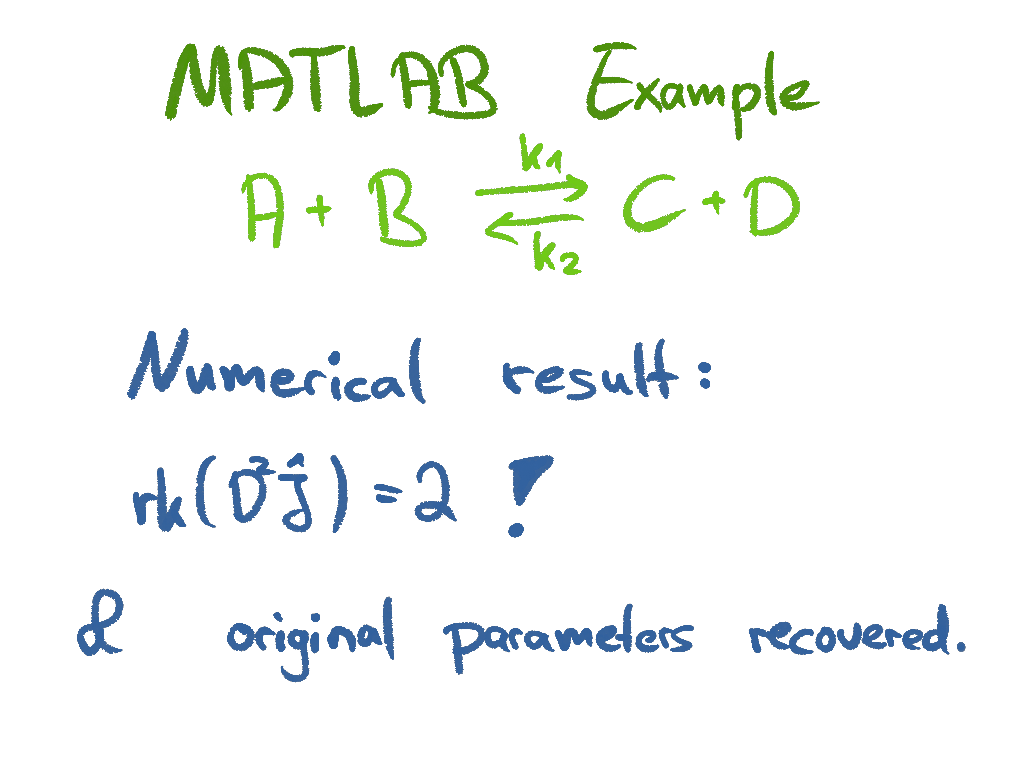 MATLAB Example
A + B ⇌ C + D
k₁
k₂
Numerical result:
rk(D²Ĵ) = 2 !
& original parameters recovered.